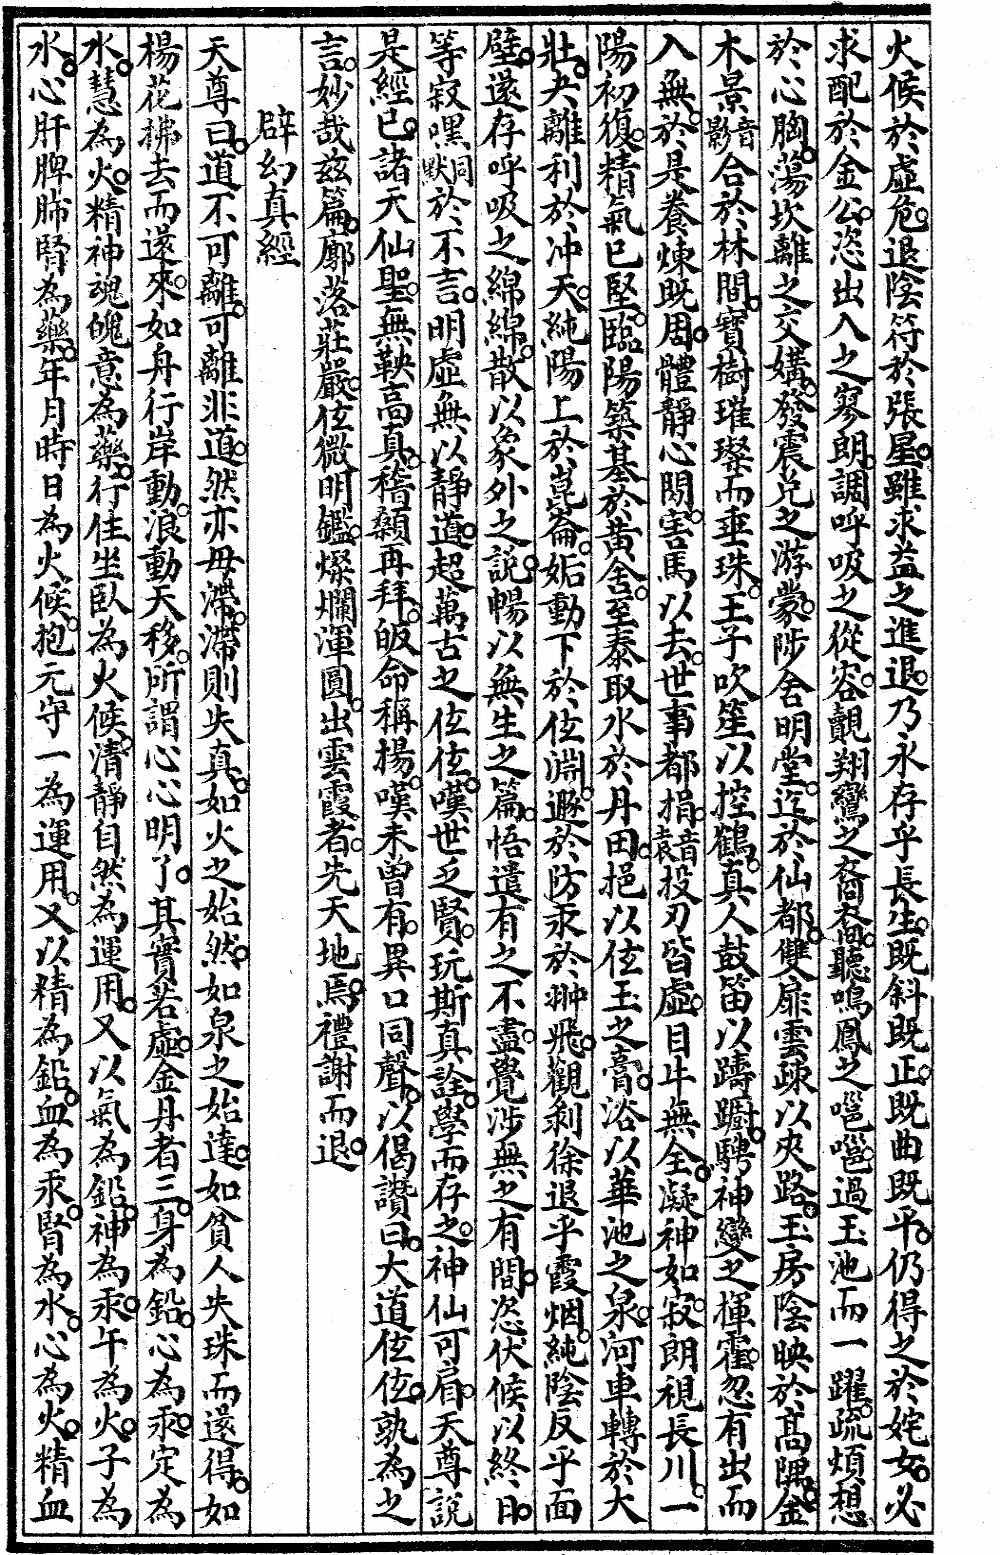 火候於虛危退陰符於張星雖求益之進退乃永存乎長生既斜既正既曲既平仍得之於姹女必
求配於金公恣出入之寥朗調呼吸之從容覿翔鸞之裔裔聽鳴鳳之嗈嗈過玉池而一躍疏煩想
於心胸蕩坎離之交媾發震兌之游蒙陟舍明堂迄於仙都雙扉雲疎以夾路玉房陰映於高隅金
木景音影合於林間寶樹璀璨而垂珠王子吹笙以控鶴真人鼓笛以躊躕騁神變之揮霍忽有出而
入無於是養煉既周體靜心閑害馬以去世事都捐音袁投刃皆虛目牛無全凝神如寂朗視長川一
陽初復精氣已堅臨陽築基於黃舍至泰取水於丹田挹以伭玉之膏浴以華池之泉河車轉於大
壯夬離利於冲天純陽上於崑崙姤動下於伭淵遯於防汞於翀飛觀剝徐退乎霞烟純陰反乎面
壁遂存呼吸之綿綿散以象外之說暢以無生之篇悟遣有之不盡覺涉無之有間恣伏候以終日
等寂嘿同默於不言明虛無以靜道超萬古之伭伭嘆世乏賢玩斯真詮學而存之神仙可肩天尊說
是經已諸天仙聖無鞅高真稽顙再拜皈命稱揚嘆未曾有異口同聲以偈讚曰大道伭伭孰為之
言妙哉兹篇廓落莊嚴伭微明鑑燦爛渾圓出雲霞者先天地焉禮謝而退
辟幻真經
天尊曰道不可離可離非道然亦毋滯滯則失真如火之始然如泉之始達如貧人失珠而還得如
楊花拂去而還來如舟行岸動浪動天移所謂心心明了其實若虛金丹者三身為鉛心為汞定為
水慧為火精神魂魄意為藥行住坐臥為火候清靜自然為運用又以氣為鉛神為汞午為火子為
水心肝脾肺腎為藥年月時日為火候抱元守一為運用又以精為鉛血為汞腎為水心為火精血